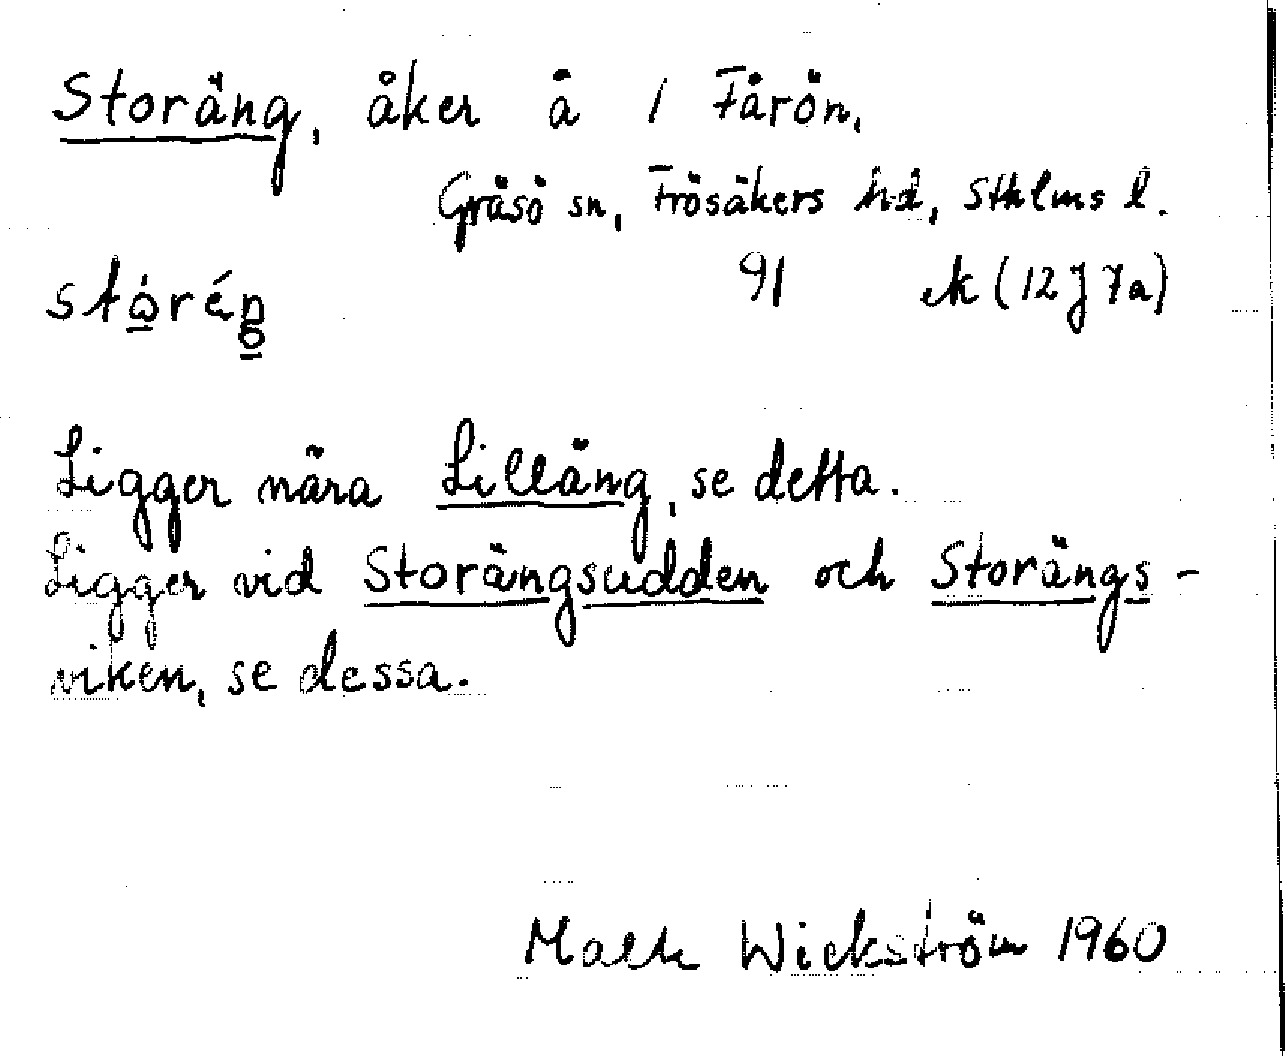 Storäng, åker å 1 Fårön.
Gräsö sn, Frösåkers hd, Sthlms l.
91 ek (12J7a)
Ligger nära Lilläng, se detta.
Ligger vid Storängsudden och Storängs-
viken, se dessa.
Wickström 1960